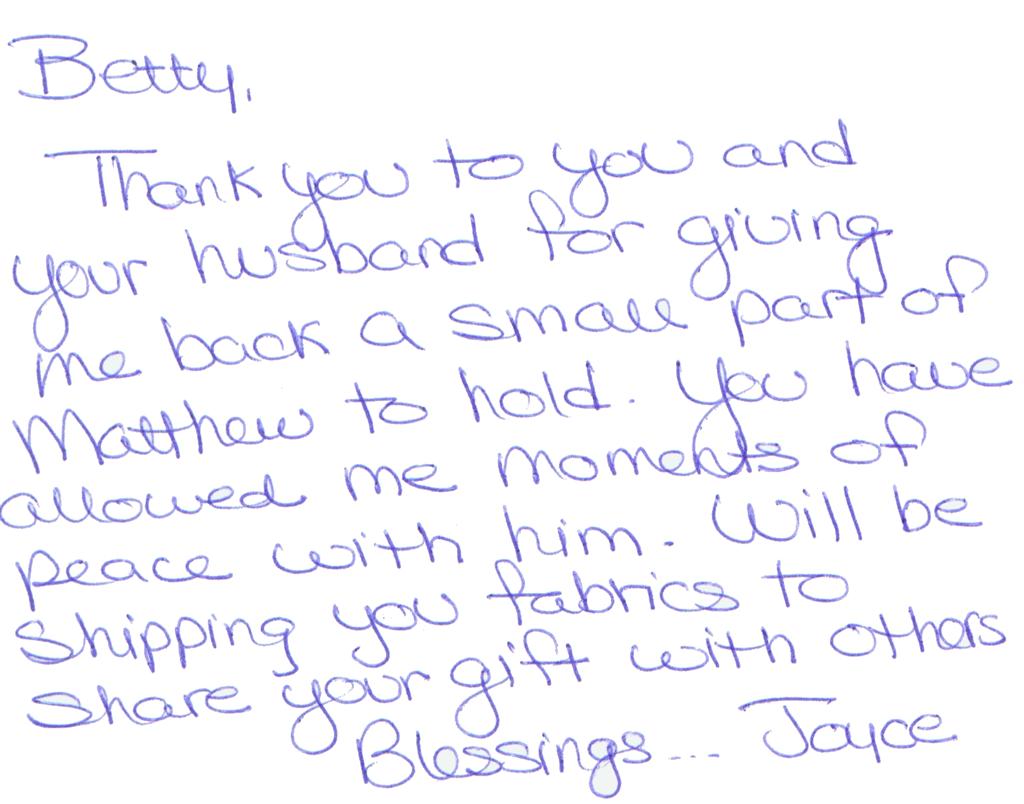 Betty,
Thank you to you and
your husband for giving
me back a small part of
Matthew to hold. You have
allowed me moments of
peace with him. Will be
shipping you fabrics to
share your gift with others
Blessings... Joyce